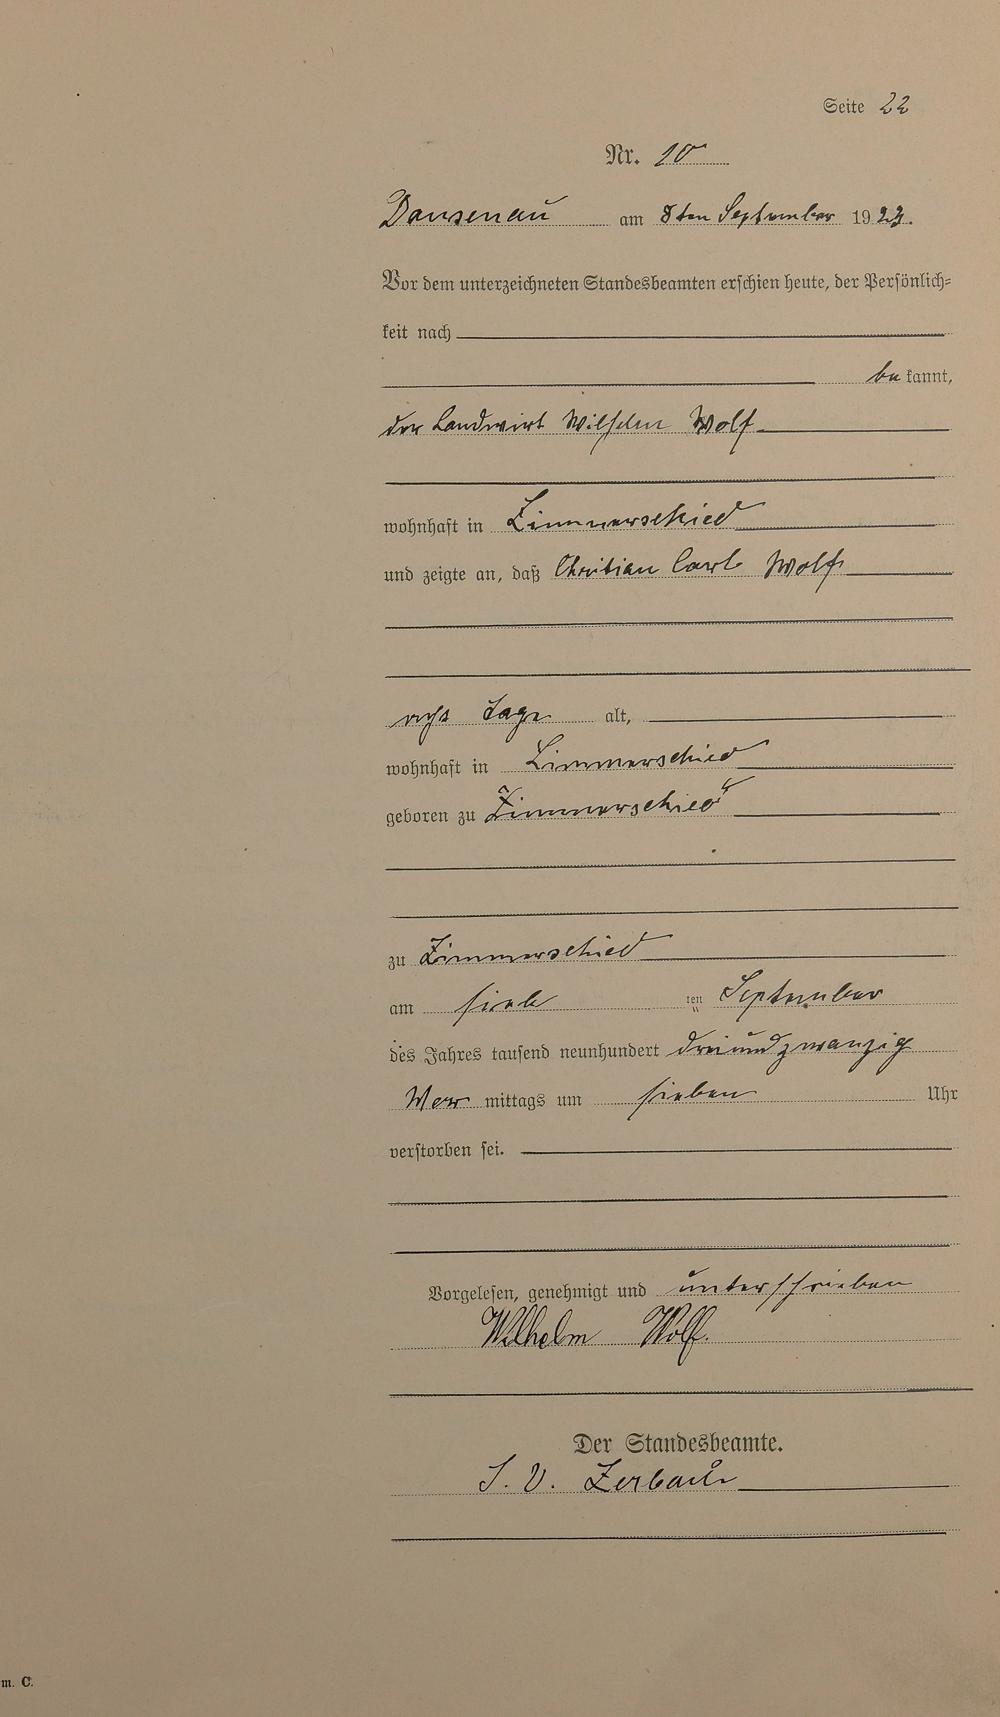 Seite 22
Nr. 10
Dausenau am 8ten September 1923.
Vor dem unterzeichneten Standesbeamten erschien heute, der Persönlich-
keit nach
be kannt,
der Landwirt Wilhelm Wolf
wohnhaft in Zimmerschied
und zeigte an, daß Christian Carl Wolf
acht Tage alt,
wohnhaft in Zimmerschied
geboren zu Zimmerschied
zu Zimmerschied
am sieb ten September
des Jahres tausend neunhundert dreiundzwanzig
Vor mittags um sieben Uhr
verstorben sei.
Vorgelesen, genehmigt und unterschrieben
Wilhelm Wolf.
Der Standesbeamte.
I. V. Zerbach
m. C.